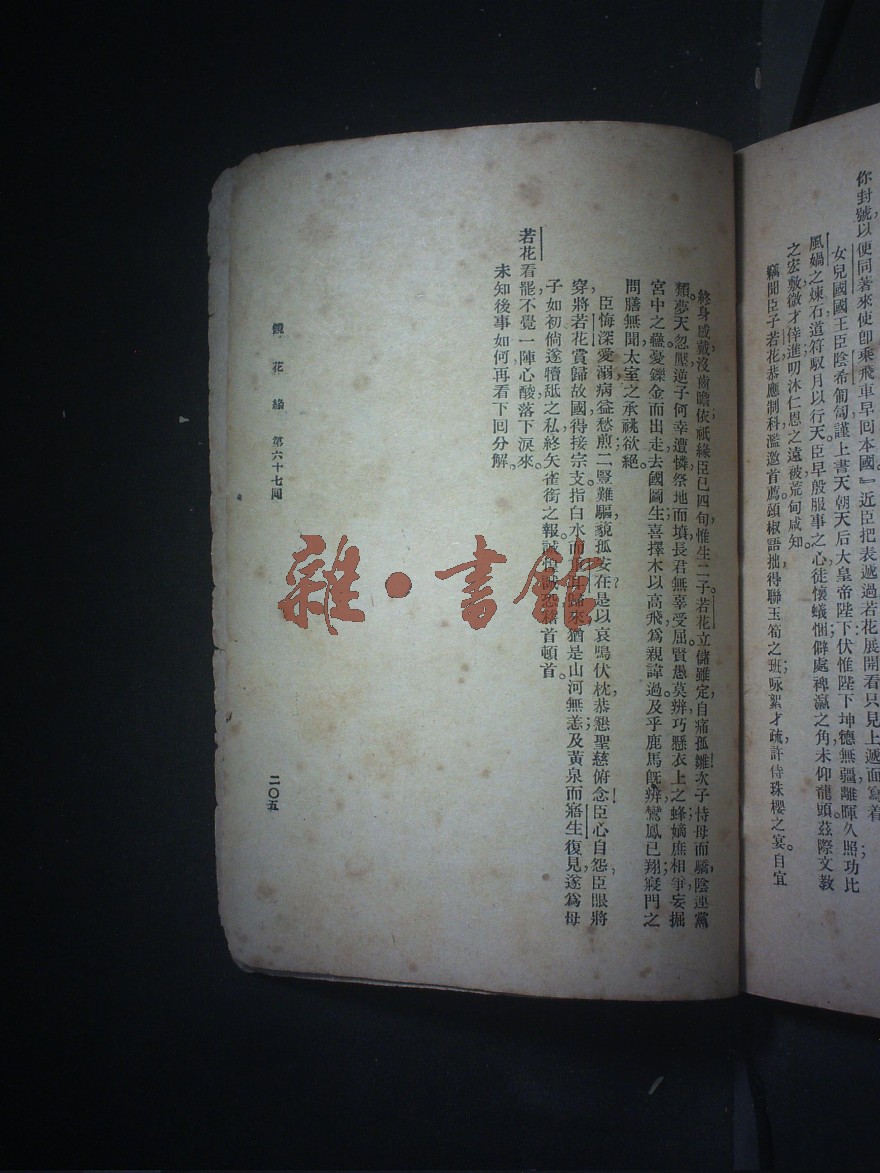 你封號以便同著來使卽乘飛車早囘本國。』近臣把表遞過若花展開看只見上遞面寫着
女兒國國王臣陰希匍匐謹上書天朝天后大皇帝陛下伏惟陛下坤德無疆離暉久照功比
風媧之煉石道符馭月以行天。臣早殷服事之心徒懷蟻悃僻處裨瀛之角未仰龍頭茲際文教
之宏敷微才倖進叨沐仁恩之遠被荒甸咸知。
竊聞臣子若花恭應制科濫邀首薦頌椒語拙得聯玉筍之班咏絮才疏許侍珠櫻之宴。自宜
終身感戴沒齒瞻依祇緣臣已四旬惟生二子若花立儲雖定自痛孤雛次子恃母而驕陰連黨
類夢天忽壓逆子何幸遭憐祭地而墳長君無辜受屈。賢愚莫辨巧懸衣上之蜂嫡庶相爭妄掘
宮中之蠱憂鑠金而出走去國圖生喜擇木以高飛爲親諱過。及乎鹿馬旣辨鸞鳳已翔寢門之
問膳無聞太室之承祧欲絕
臣悔深愛溺病益愁煎二豎難驅藐孤安在?是以哀鳴伏枕恭懇聖慈俯念臣心自怨臣眼將
穿將若花賞歸故國得接宗支指白水而歸來猶是山河無恙及黃泉而寤生復見遂爲母
子如初倘遂犢舐之私終矢雀銜之報誠恐稽首頓首。
若花看罷不覺一陣心酸落下淚來。
未知後事如何再看下囘分解。
鏡花緣 第六十七囘
二〇五
雜·書館